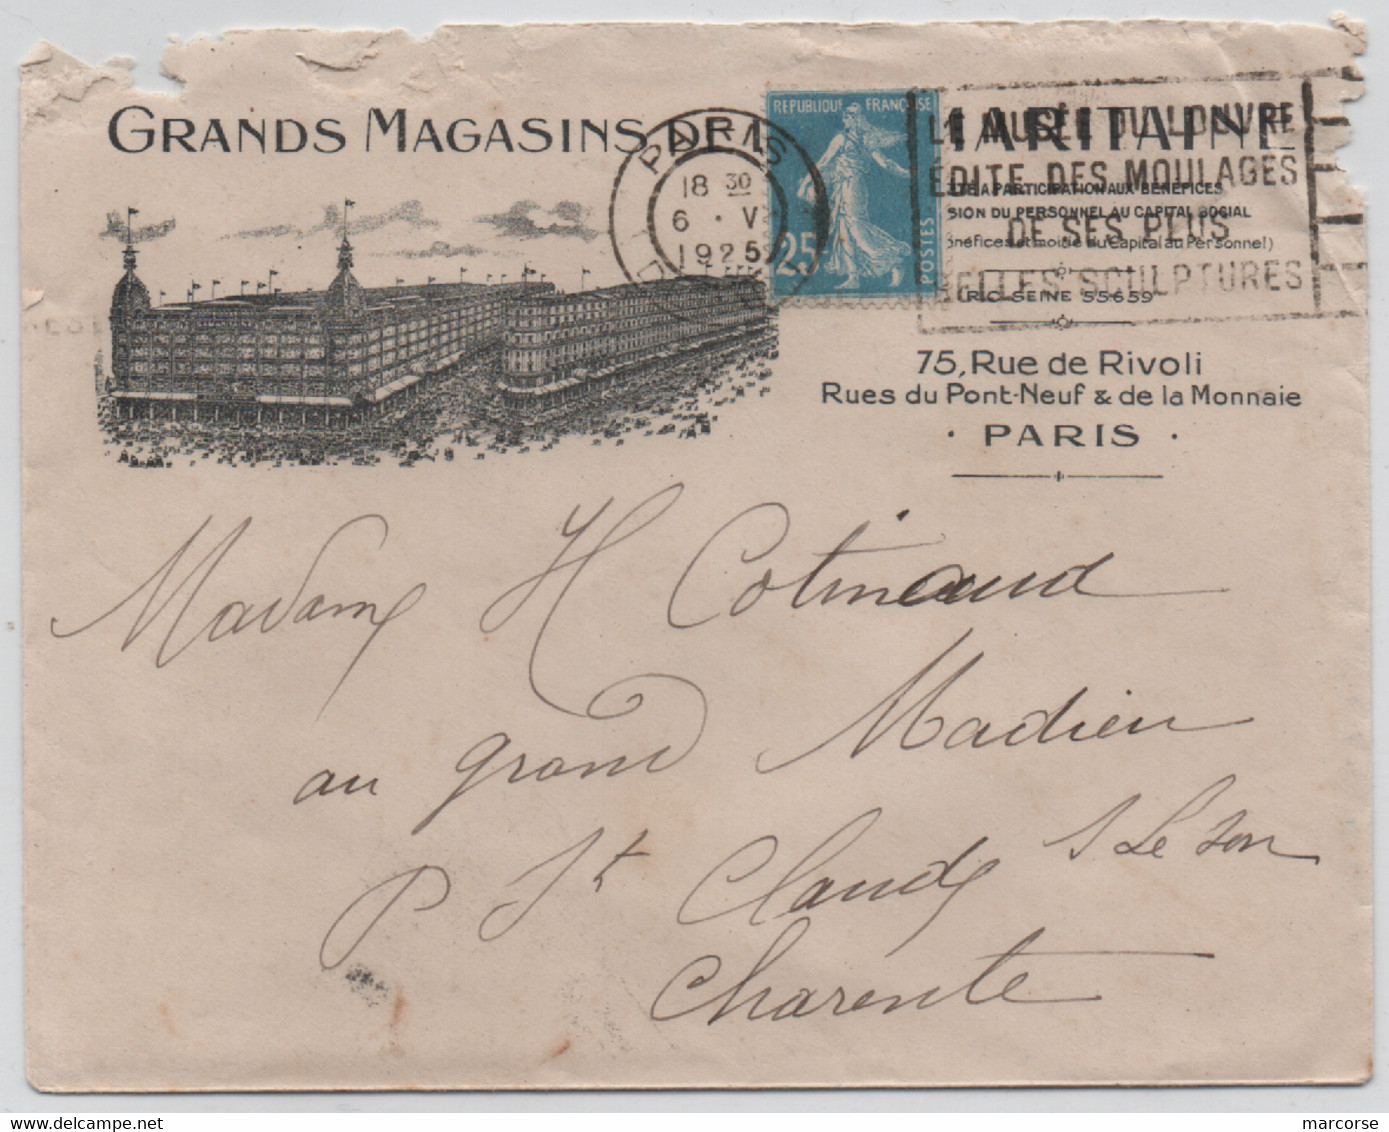 GRANDS MAGASINS DE L ARITAINE
PARIS
18 30
6 · V
1925
REPUBLIQUE FRANÇAISE
25
POSTES
LE MUSÉE DU LOUVRE
ÉDITE DES MOULAGES
DE SES PLUS
BELLES SCULPTURES
TÉ A PARTICIPATION AUX BÉNÉFICES
SION DU PERSONNEL AU CAPITAL SOCIAL
énéfices et moitié du Capital au Personnel)
R.C. SEINE 55659
75, Rue de Rivoli
Rues du Pont-Neuf & de la Monnaie
· PARIS ·
Madame H Cotineaud
au grand Madieu
P St Claud s Le Son
Charente
marcorse